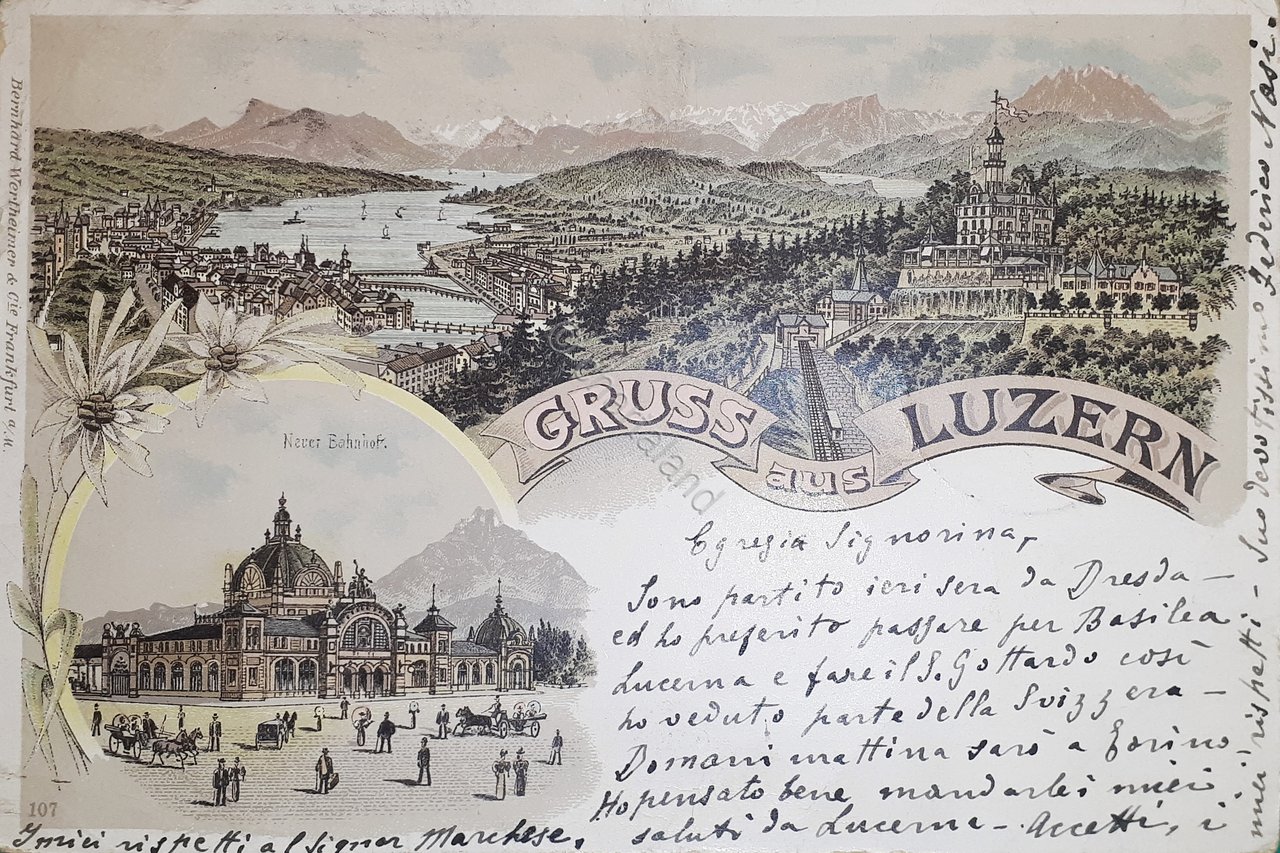 Bernhard Wertheimer & Cie Frankfurt a. M.
Neuer Bahnhof.
GRUSS
aus
LUZERN
107
Egregia Signorina,
Sono partito ieri sera da Dresda —
ed ho preferito passare per Basilea
Lucerna e fare il S. Gottardo così
ho veduto parte della Svizzera —
Domani mattina sarò a Torino —
Ho pensato bene mandarle i miei
saluti da Lucerna — Accetti, i
miei rispetti — Suo devotissimo Federico Nasi.
I miei rispetti al Signor Marchese.